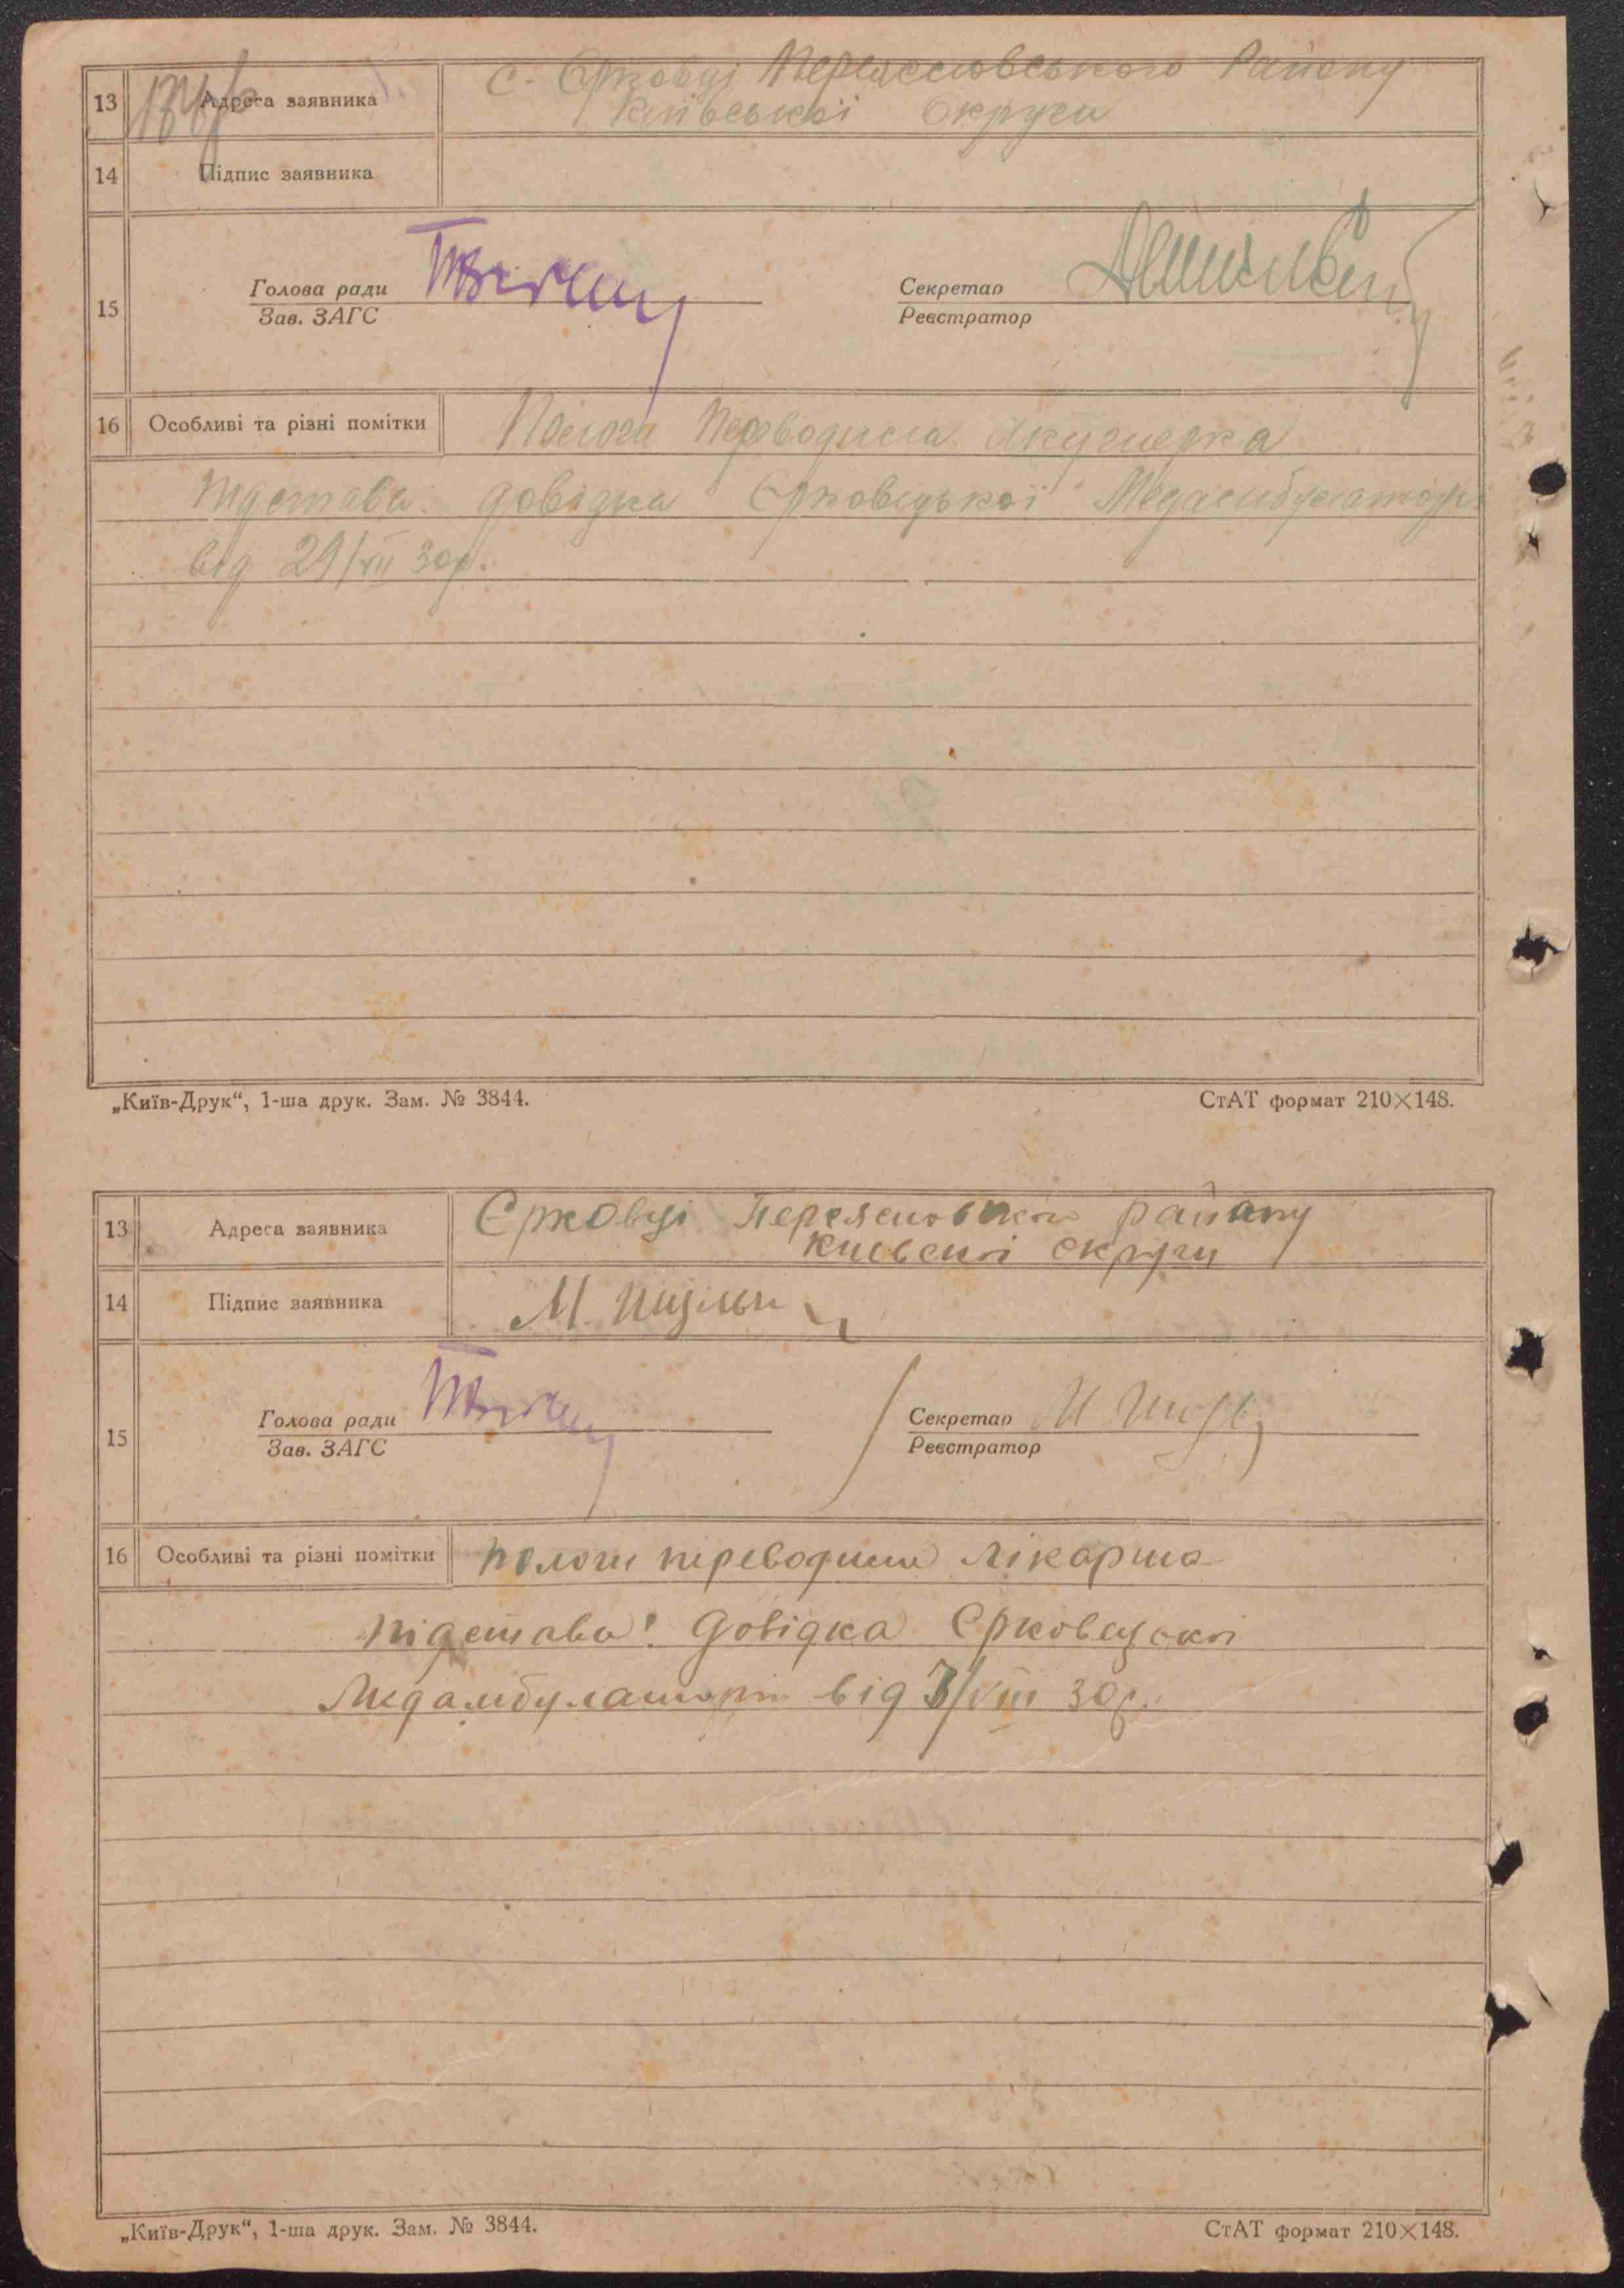 с. Єрковці Переяславського Району
13 Адреса заявника
Київської Округи
14 Підпис заявника
15 Голова ради
Зав. ЗАГС
Секретар
Реєстратор
16 Особливі та різні помітки
Пологи переводила Акушерка
Підстава: довідка Єрковецької Медамбулаторії
від 29/VII 30р.
„Київ-Друк“, 1-ша друк. Зам. № 3844. СтАТ формат 210×148.
13 Адреса заявника Єрковці району
округи
14 Підпис заявника М.
15 Голова ради
Зав. ЗАГС
Секретар
Реєстратор
16 Особливі та різні помітки пологи переводила лікарша
підстава: Довідка
Медамбулаторії від 3/VIII 30р.
„Київ-Друк“, 1-ша друк. Зам. № 3844. СтАТ формат 210×148.